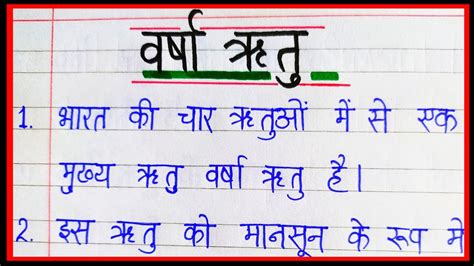 वर्षा ऋतु
1. भारत की चार ऋतुओं में से एक
मुख्य ऋतु वर्षा ऋतु है।
2. इस ऋतु को मानसून के रूप में